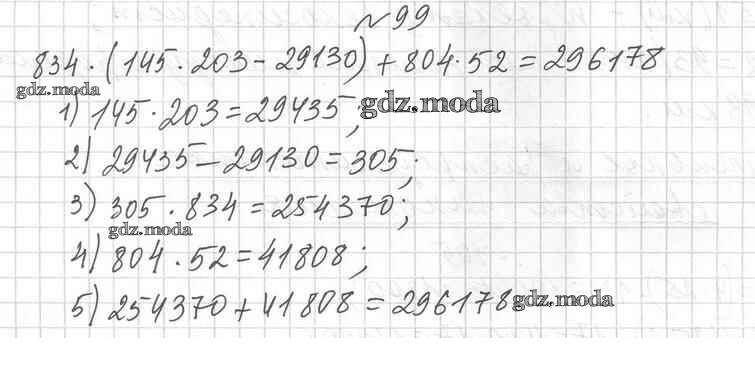 №99
834·(145·203-29130)+804·52=296178
gdz.moda
1) 145·203=29435;
gdz.moda
2) 29435-29130=305;
3) 305·834=254370;
gdz.moda
4) 804·52=41808;
5) 254370+41808=296178
gdz.moda